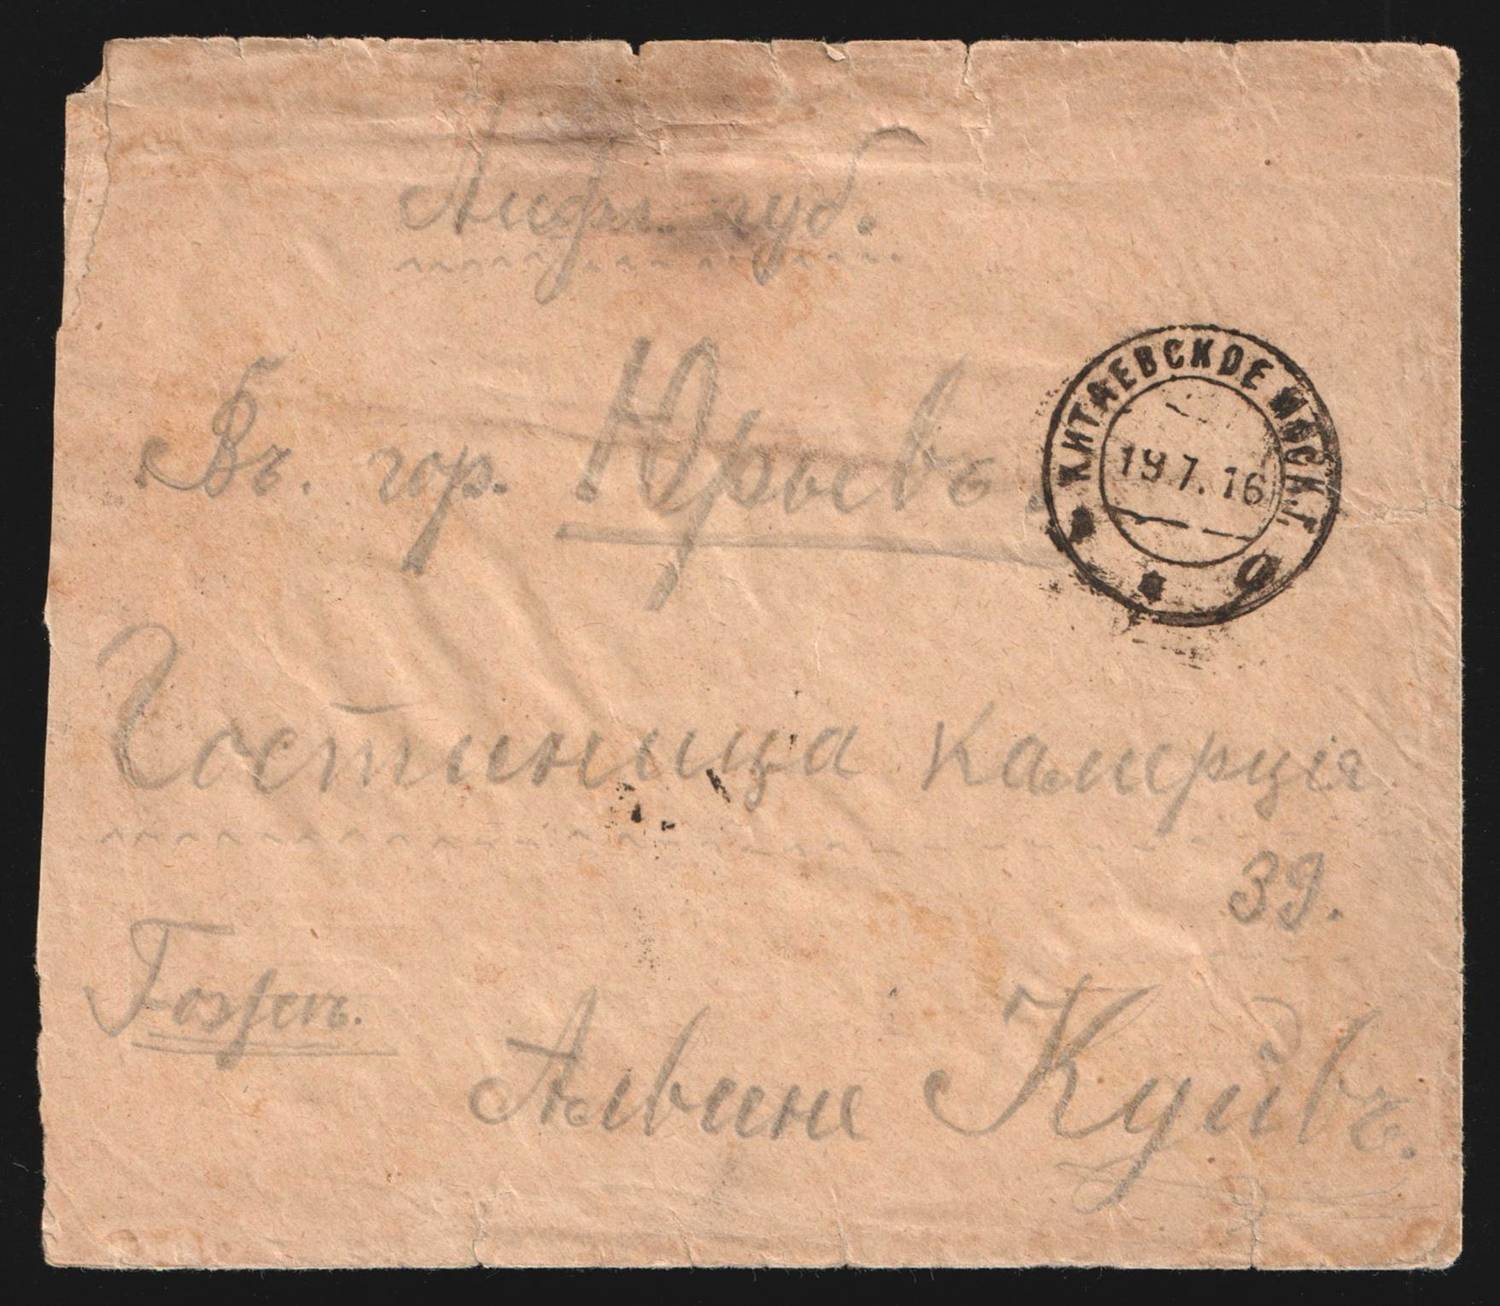 Лифл. губ.
Въ. гор. Юрьевъ.
КИТАЕВСКОЕ МОСК. Г.
19.7.16
Гостиница Камерція
39.
Альвине Куйвъ.